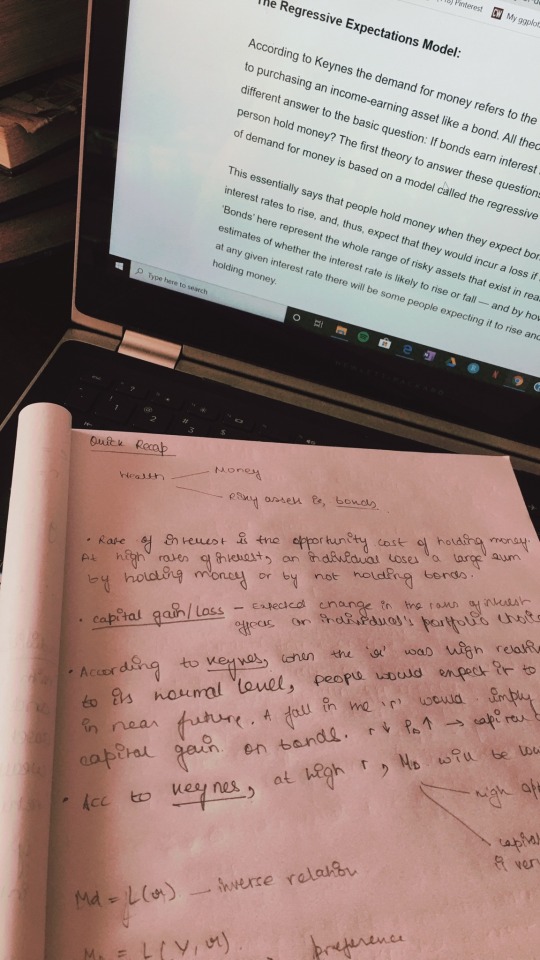 Pinterest
My ggplot
The Regressive Expectations Model:
According to Keynes the demand for money refers to the
to purchasing an income-earning asset like a bond. All
different answer to the basic question: If bonds earn interest
person hold money? The first theory to answer these questions
of demand for money is based on a model called the regressive
This essentially says that people hold money when they expect
interest rates to rise, and, thus, expect that they would incur a loss if
'Bonds' here represent the whole range of risky assets that exist in
estimates of whether the interest rate is likely to rise or fall — and by
at any given interest rate there will be some people expecting it to rise
holding money.
Type here to search
Quick Recap
Money
Risky asset bonds
• Rate of interest is the opportunity cost of holding money.
At high rates of interest, an individual loses a large sum
by holding money or by not holding bonds.
• capital gain/loss – expected change in the rates of interest
an individual's portfolio
• According to Keynes, when the 'r' was high
to its normal level, people would expect it to
in near future. A fall in the 'r' would imply
capital gain on bonds. r ↓ P_B ↑ →
• Acc to Keynes, at high r, M_D will be
high
Md = L(r) — inverse relation
= L(Y, r)
preference